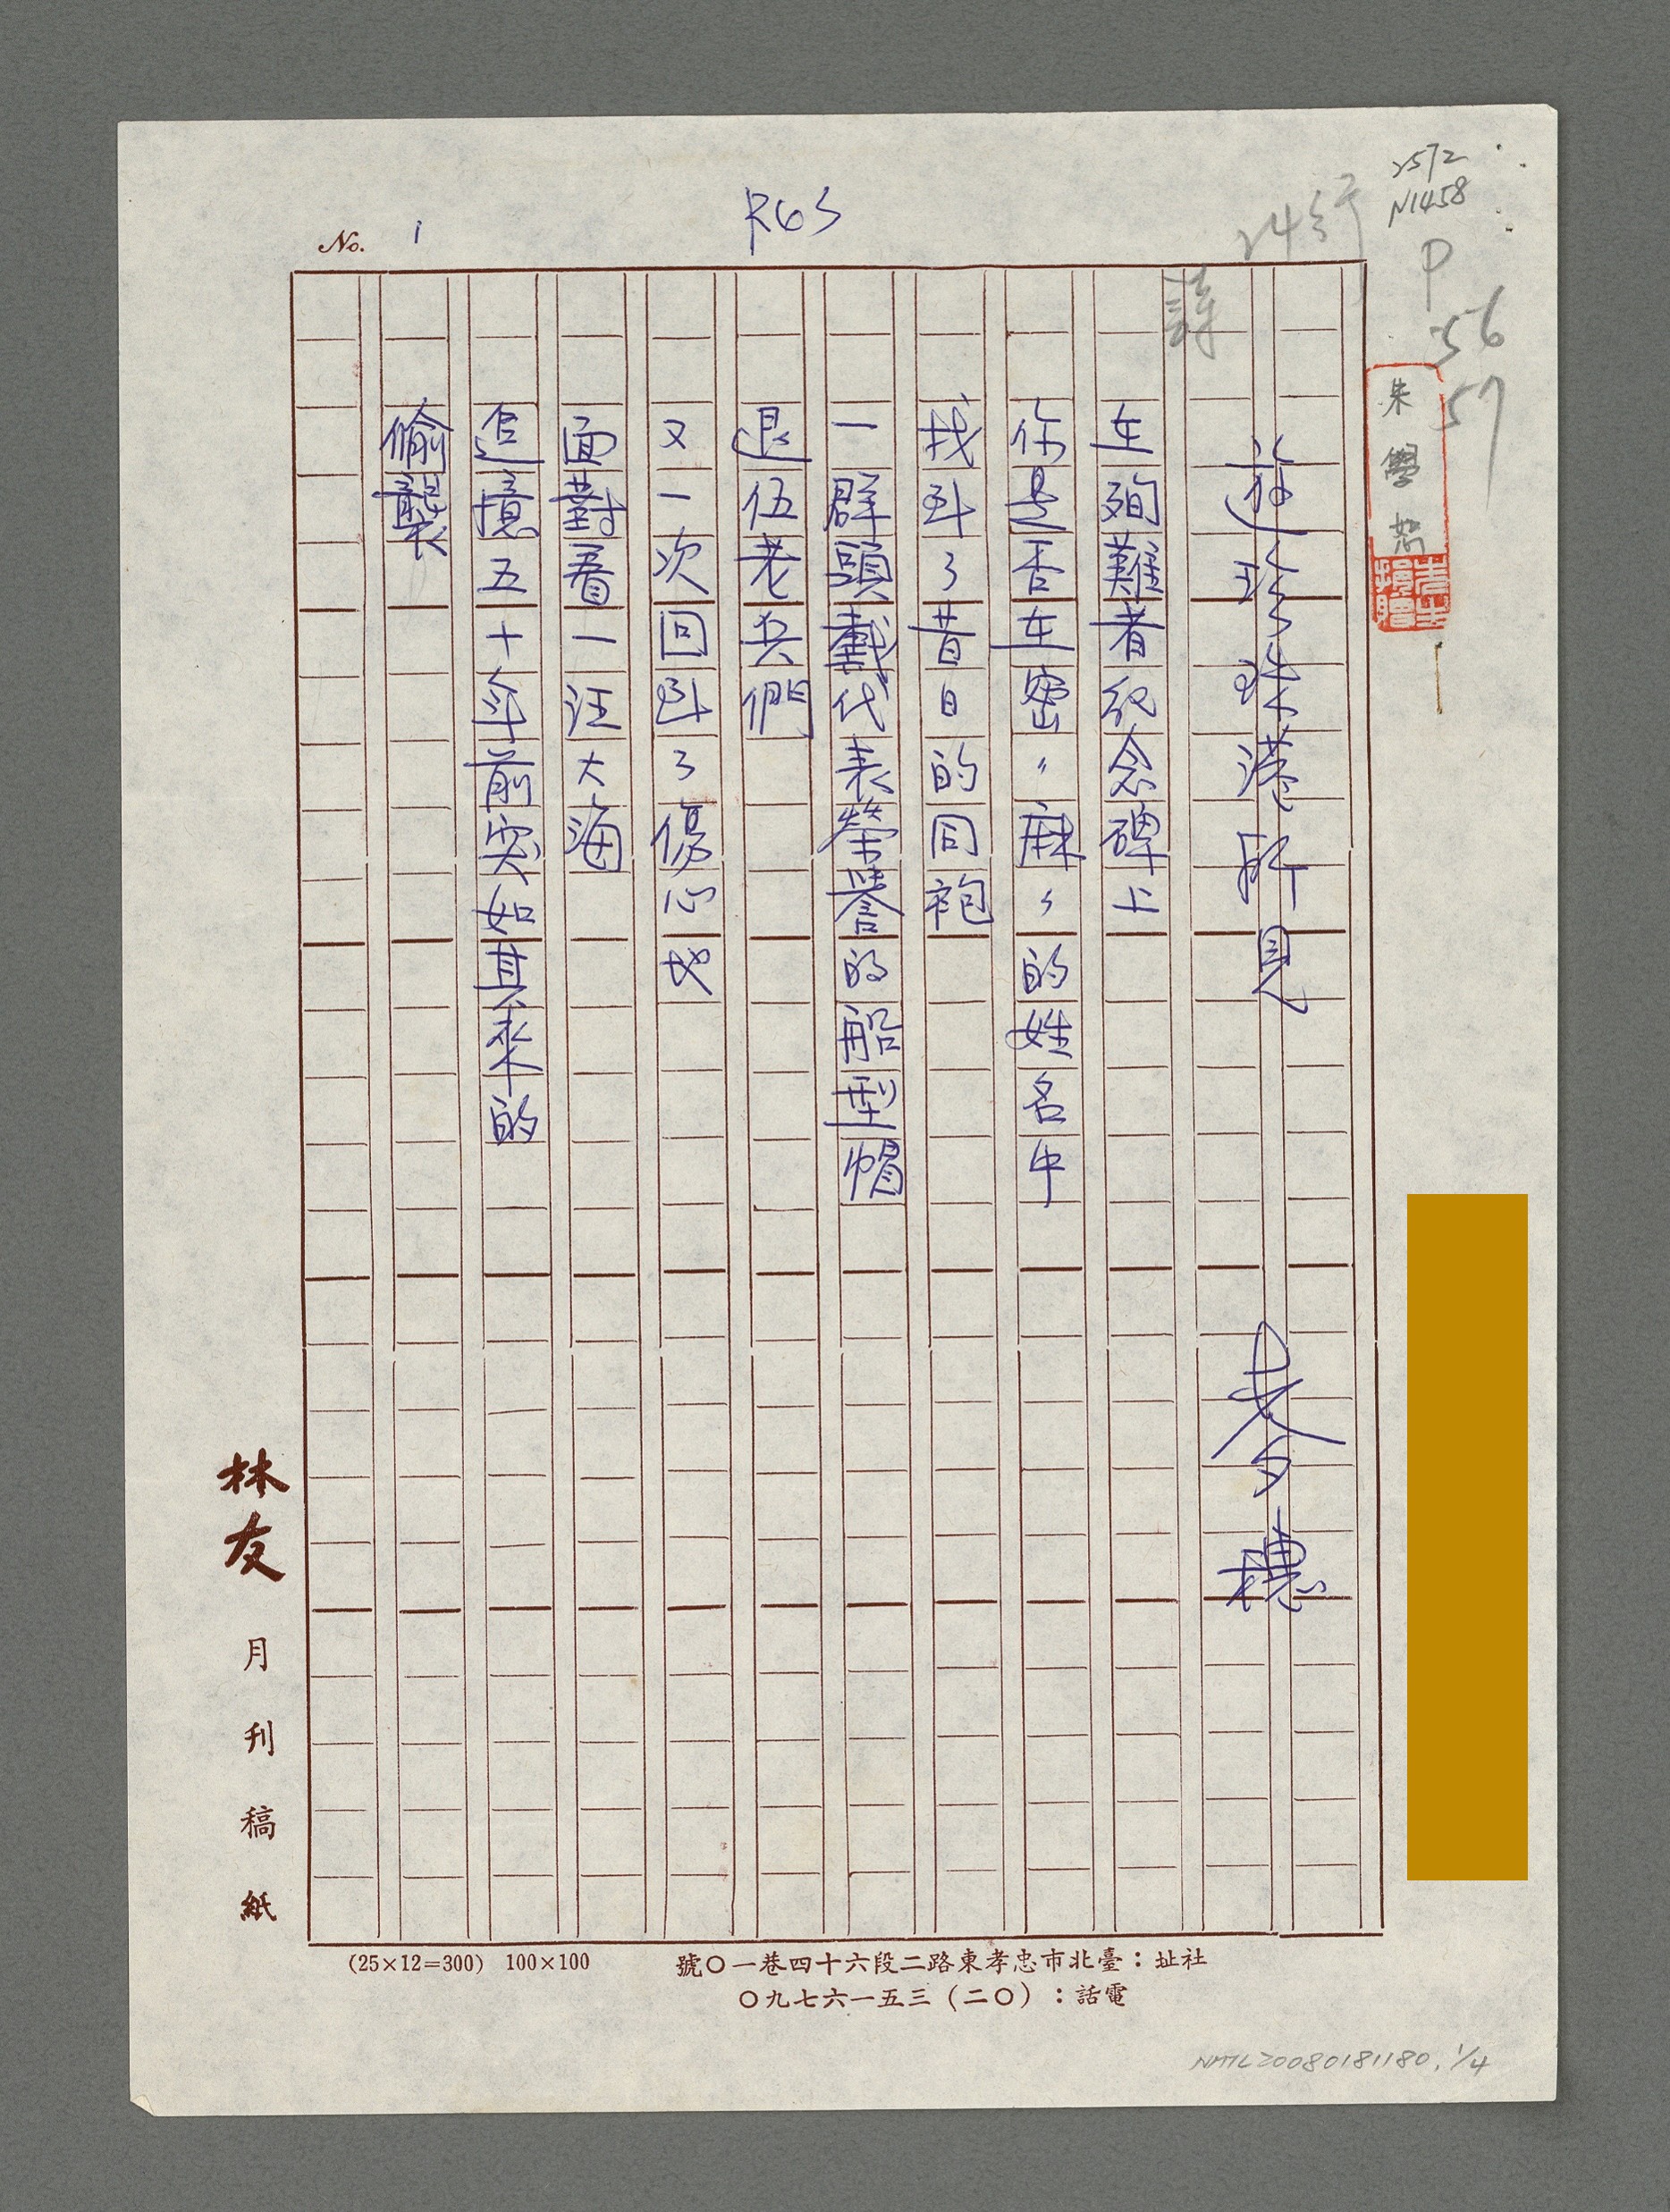 2572
N1458
P
56
57
24行
詩
R63
No. 1
朱學恕
遊珍珠港所見
麥穗
在殉難者紀念碑上
你是否在密〃麻〃的姓名中
找到了昔日的同袍
一群頭戴代表榮譽的船型帽
退伍老兵們
又一次回到了傷心地
面對着一汪大海
追憶五十年前突如其來的
偷襲
林友月刊稿紙
(25×12=300) 100×100
號〇一巷四十六段二路東孝忠市北臺：址社
〇九七六一五三(二〇)：話電
NMTL20080181180, 1/4